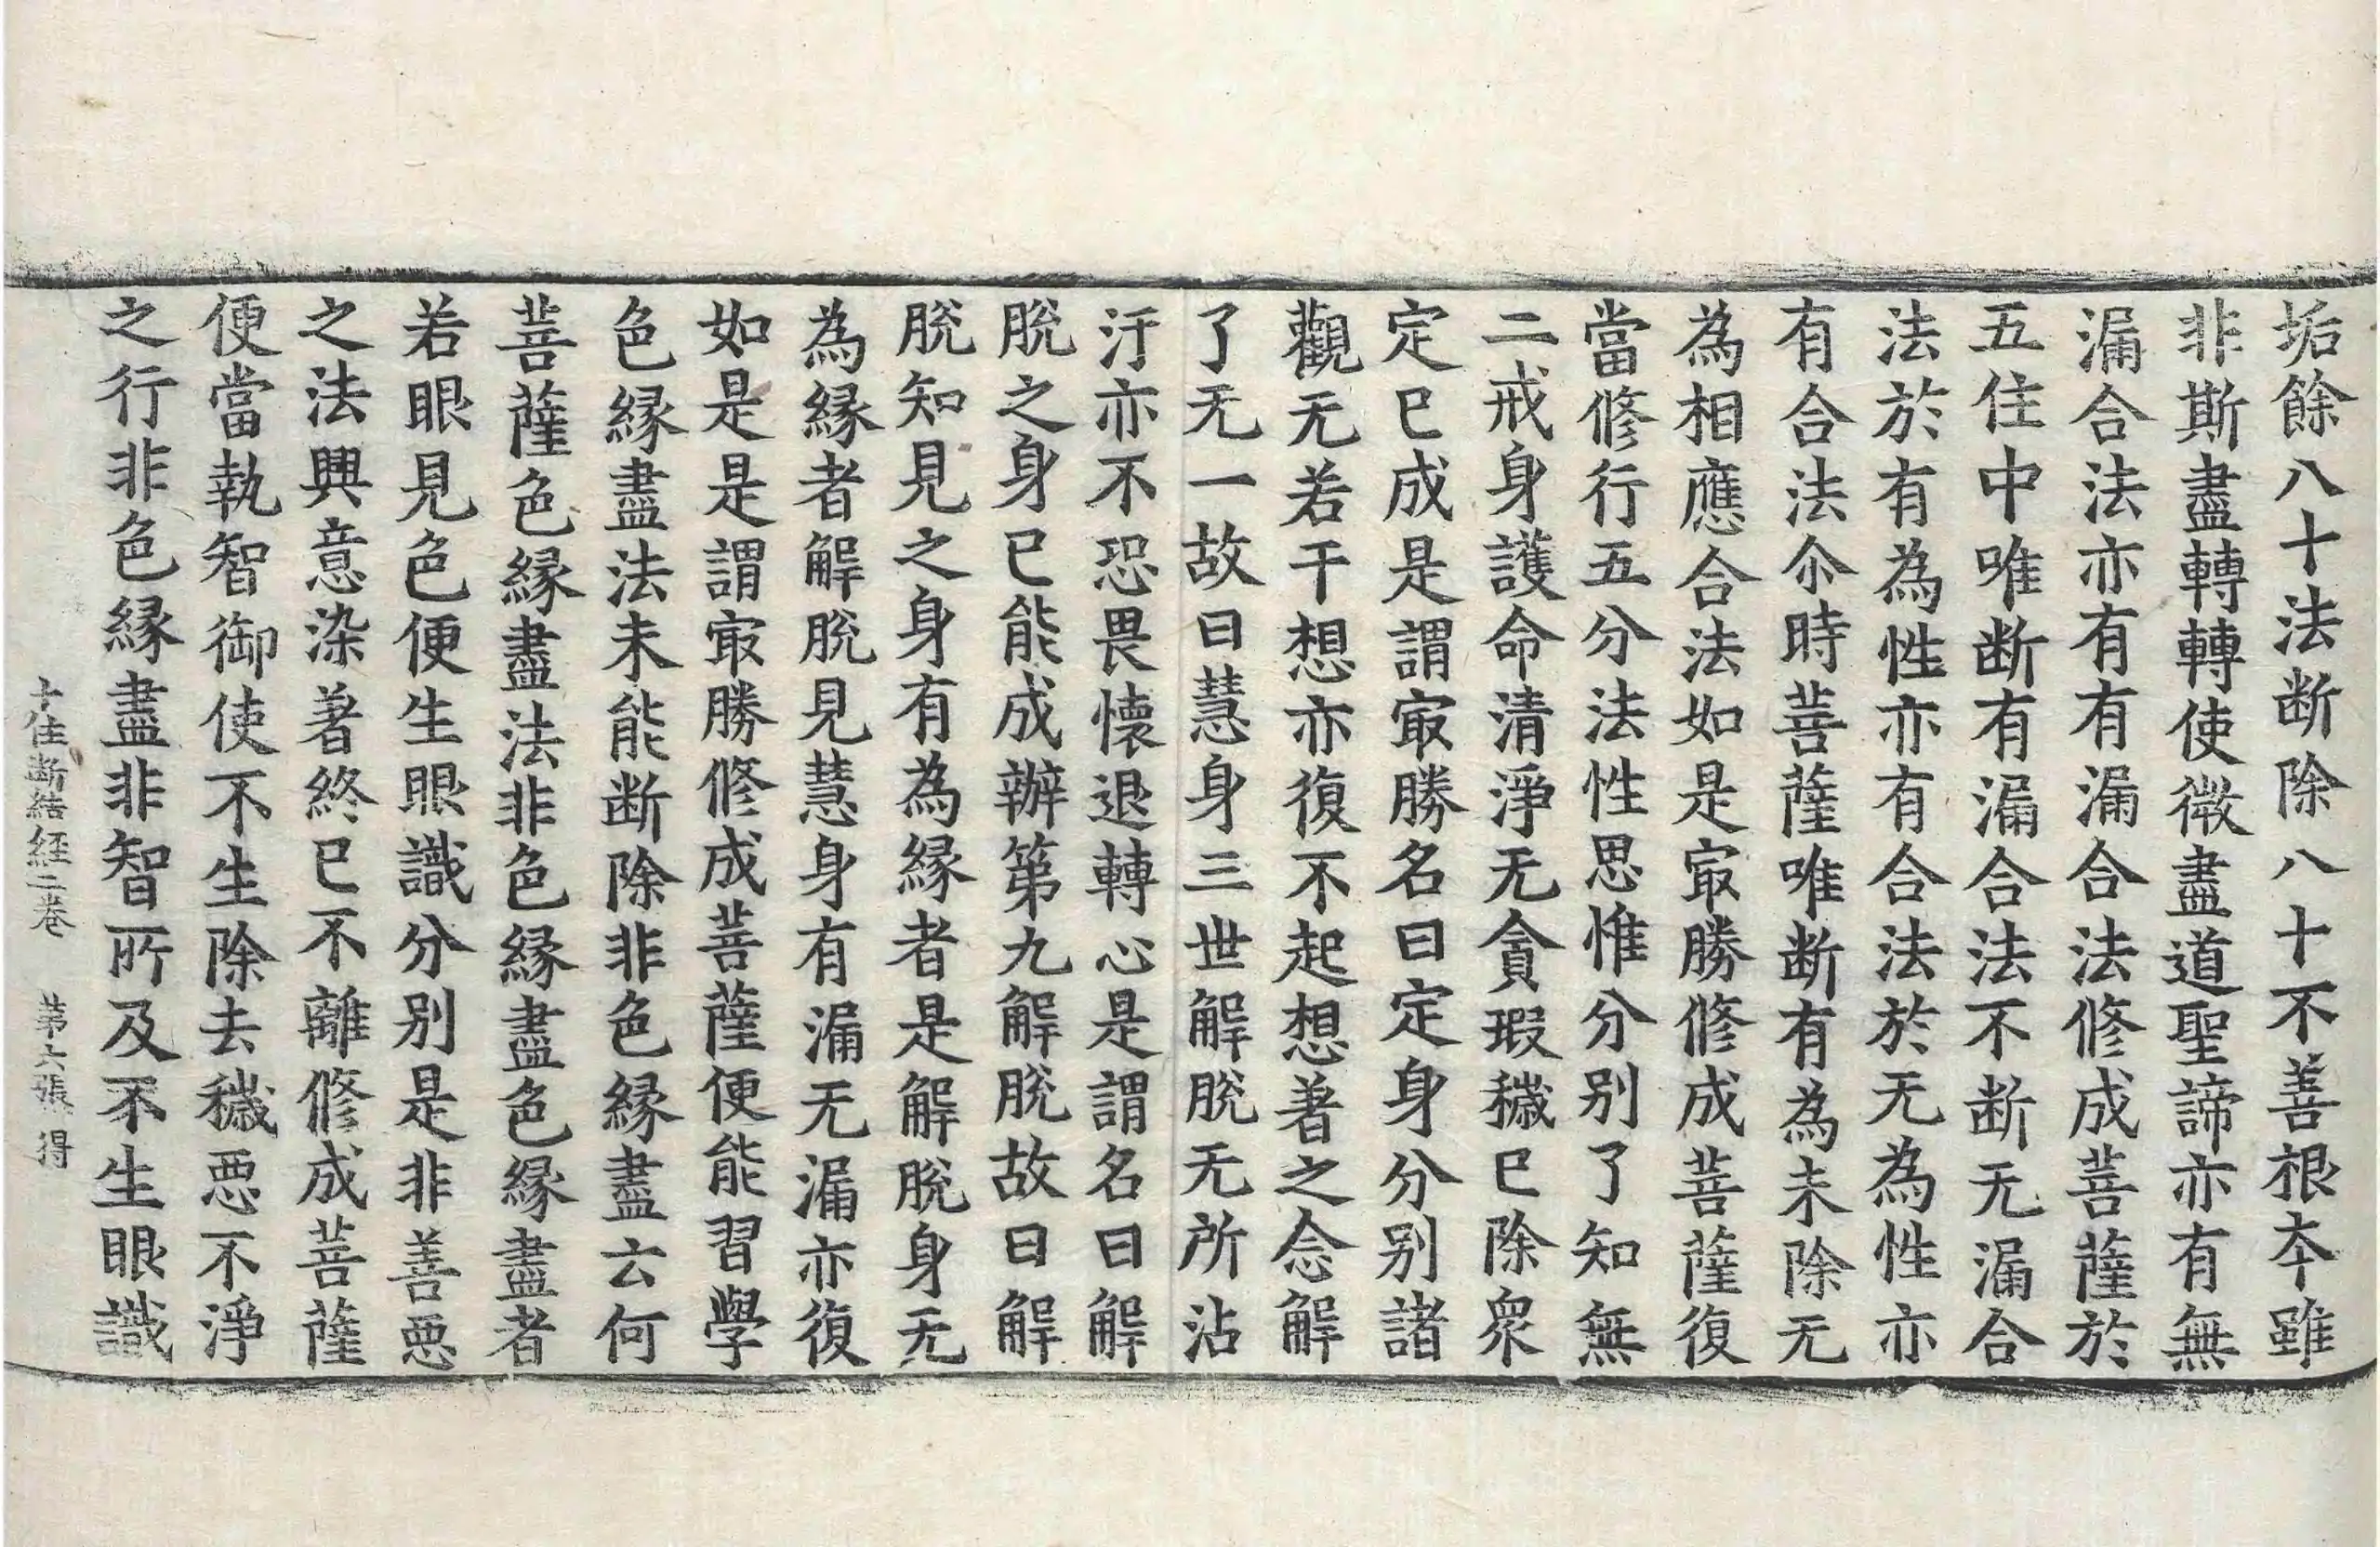 垢餘八十法断除八十不善根夲雖
非斯盡轉轉使微盡道聖諦亦有無
漏合法亦有有漏合法修成菩薩於
五住中唯断有漏合法不断无漏合
法於有為性亦有合法於无為性亦
有合法尒時菩薩唯断有為未除无
為相應合法如是㝡勝修成菩薩復
當修行五分法性思惟分别了知無
二戒身護命清淨无貪瑕穢已除眾
定已成是謂㝡勝名曰定身分别諸
觀无若干想亦復不起想著之念解
了无一故曰慧身三世解脫无所沾
汙亦不恐畏懷退轉心是謂名曰解
脫之身已能成辦第九解脫故曰解
脫知見之身有為緣者是解脫身无
為緣者解脫見慧身有漏无漏亦復
如是是謂㝡勝修成菩薩便能習學
色緣盡法未能断除非色緣盡云何
菩薩色緣盡法非色緣盡色緣盡者
若眼見色便生眼識分别是非善惡
之法興意染著終已不離修成菩薩
便當執智御使不生除去穢惡不淨
之行非色緣盡非智所及不生眼識
十住断結経二卷 苐六張 得